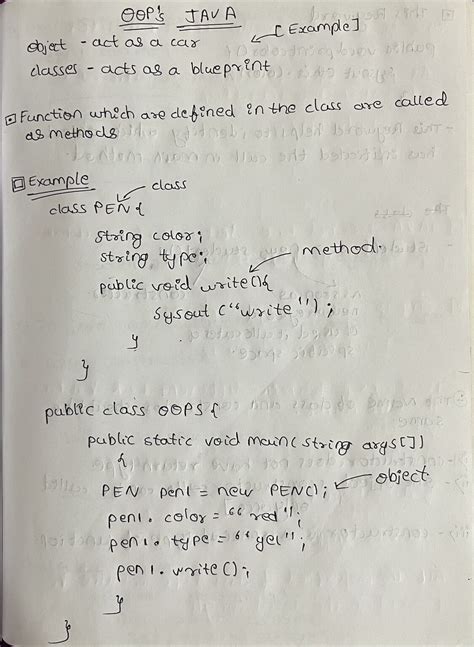 OOP's JAVA
object - act as a car [Example]
classes - acts as a blueprint
Function which are defined in the class are called
as methods
Example
class
class PEN {
string color;
string type;
method.
public void write(){
sysout ("write");
}
}
public class OOPS {
public static void main(string args[])
{
PEN pen1 = new PEN(); object
pen1. color = "red";
pen1. type = "gel";
pen1. write();
}
}